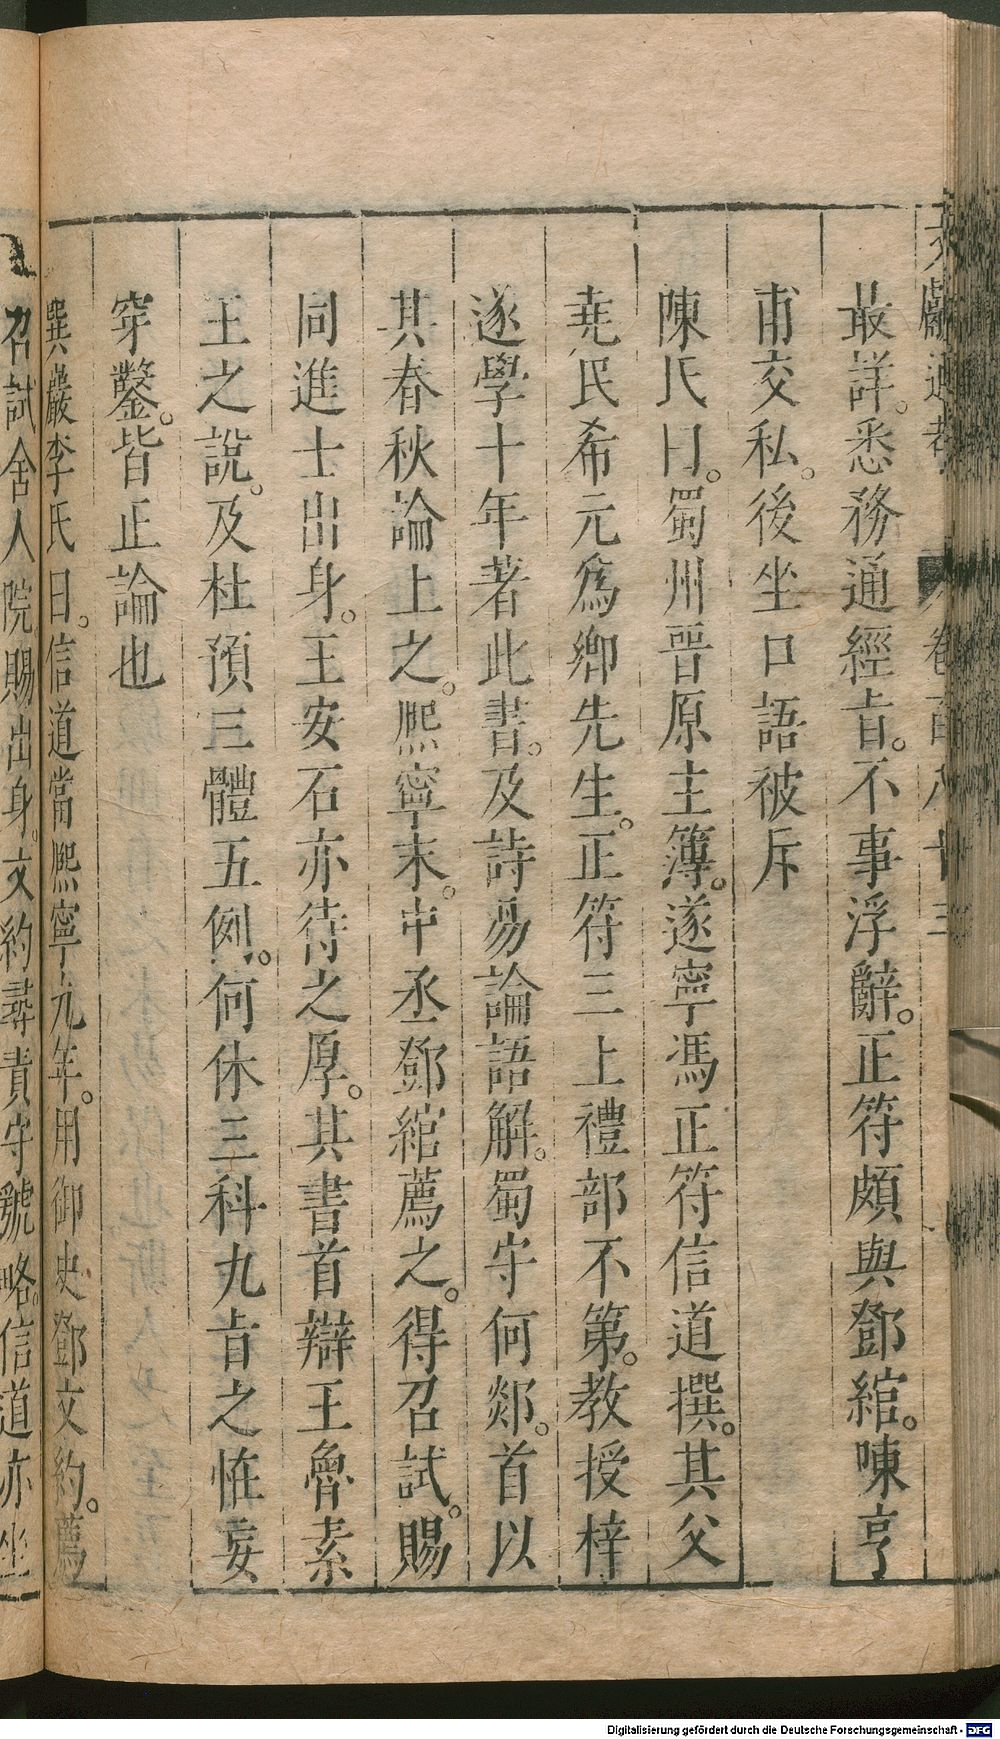 文獻通考 卷百八十三
最詳。悉務通經旨。不事浮辭。正符頗與鄧綰。陳亨
甫交私。後坐口語被斥
陳氏曰。蜀州晉原主簿。遂寧馮正符信道撰。其父
堯民希元爲鄉先生。正符三上禮部不第。教授梓
遂學十年著此書。及詩易論語解。蜀守何郯。首以
其春秋論上之。熈寧末。中丞鄧綰薦之。得召試。賜
同進士出身。王安石亦待之厚。其書首辯王魯素
王之說。及杜預三體五例。何休三科九旨之怪妄
穿鑿。皆正論也
巽巖李氏曰。信道當熈寧九年。用御史鄧文約。薦
召試舍人院賜出身。文約尋責守虢略。信道亦坐
Digitalisierung gefördert durch die Deutsche Forschungsgemeinschaft - DFG